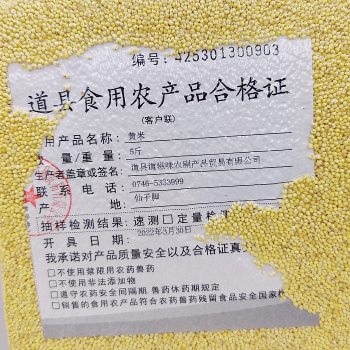 编号: 425301300903
道县食用农产品合格证
(客户联)
用产品名称: 黄米
量/重量: 5斤
生产者盖章或签名: 道县道滋味农副产品贸易有限公司
联系电话: 0746-5333999
产地: 仙子脚
抽样检测结果: 速测□定量检测
开具日期: 2022年3月30日
我承诺对产品质量安全以及合格证真
□不使用禁限用农药兽药
□不使用非法添加物
□遵守农药安全间隔期、兽药休药期规定
□销售的食用农产品符合农药兽药残留食品安全国家标